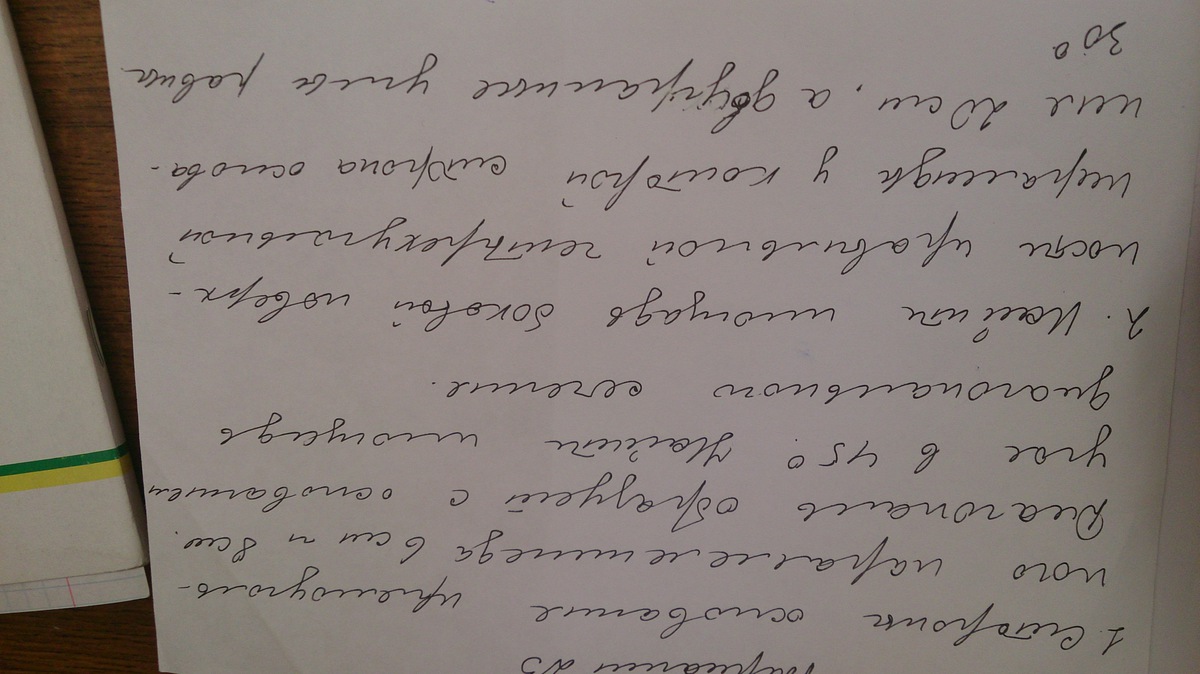 Вариант 25
1. Стороны основание прямоуголь-
ного параллелепипеда 6 см и 8 см.
Диагональ образует с основанием
угол в 45°. Найти площадь
диагонального сечение.
2. Найти площадь боковой поверх-
ности правильной четырехугольной
пирамиды у которой сторона основа-
ние 20 см, а двугранные углы равны
30°